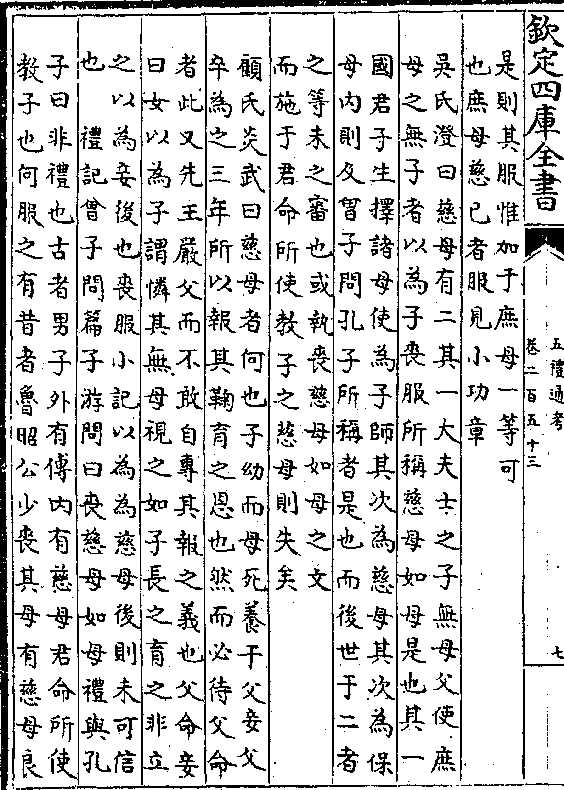 欽定四庫全書
五禮通考
卷二百五十三
七
是則其服惟加于庶母一等可
也庶母慈已者服見小功章
吳氏澄曰慈母有二其一大夫士之子無母父使庶
母之無子者以為子喪服所稱慈母如母是也其一
國君子生擇諸母使為子師其次為慈母其次為保
母内則及曾子問孔子所稱者是也而後世于二者
之等未之審也或執喪慈母如母之文
而施于君命所使教子之慈母則失矣
顧氏炎武曰慈母者何也子幼而母死養于父妾父
卒為之三年所以報其鞠育之恩也然而必待父命
者此又先王嚴父而不敢自專其報之義也父命妾
曰女以為子謂憐其無母視之如子長之育之非立
之以為妾後也喪服小記以為為慈母後則未可信
也　禮記曾子問篇子游問曰喪慈母如母禮與孔
子曰非禮也古者男子外有傅内有慈母君命所使
教子也何服之有昔者魯昭公少喪其母有慈母良